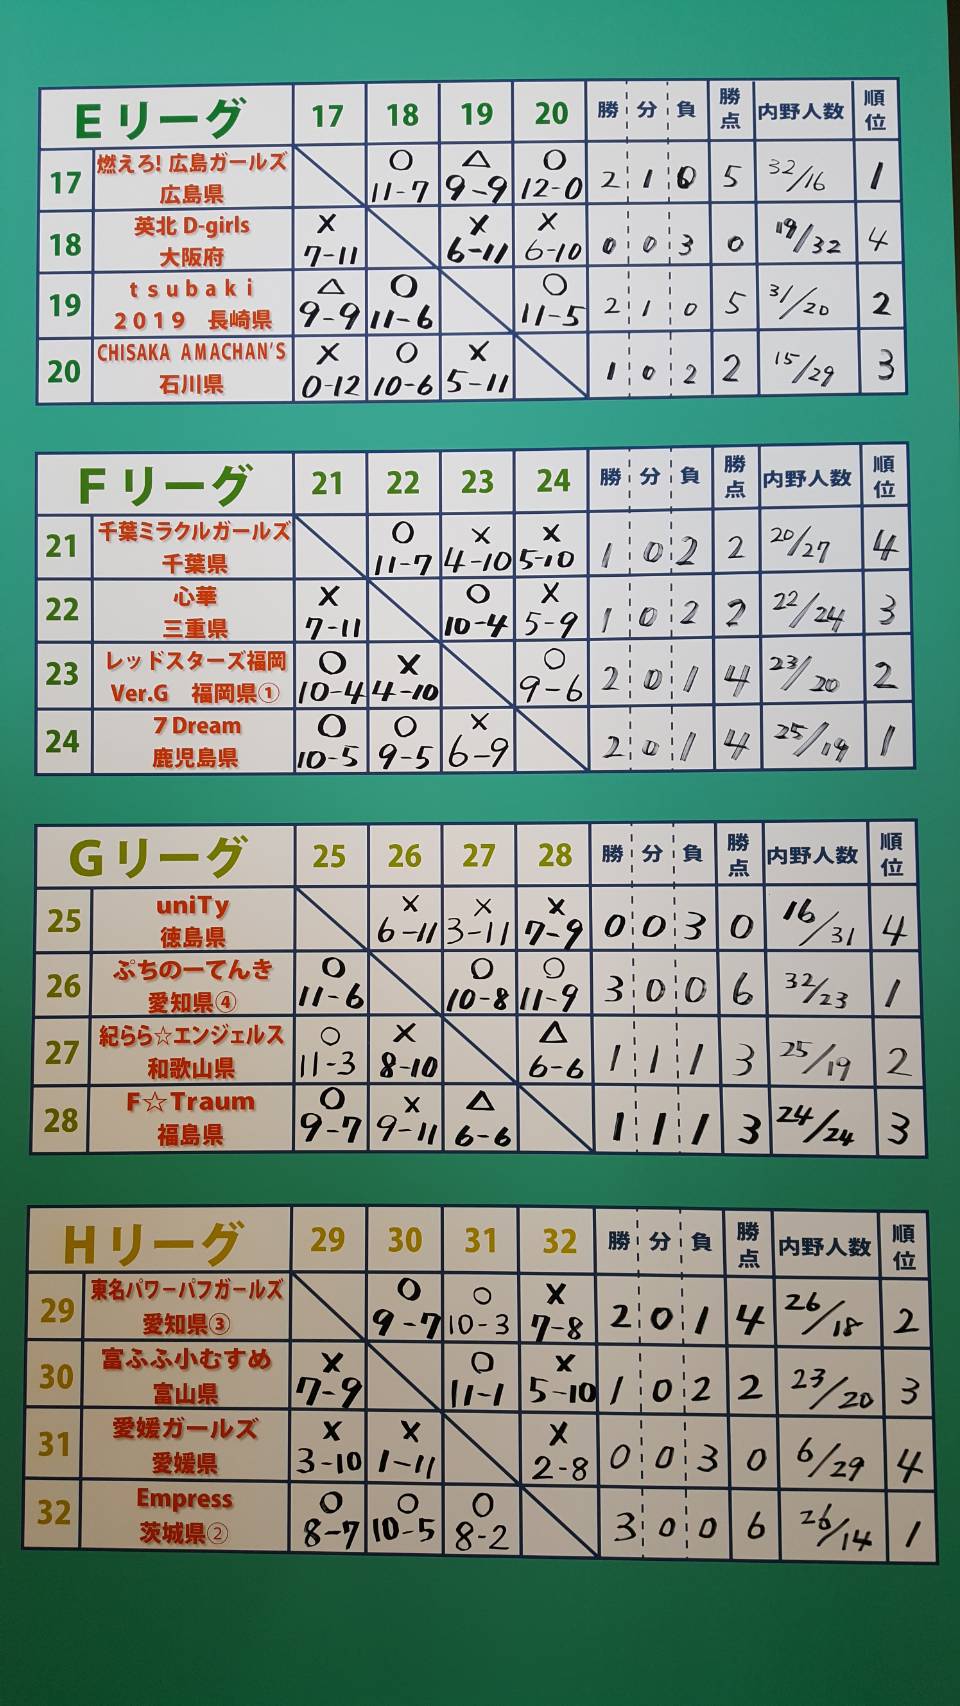 Eリーグ 17 18 19 20 勝 分 負 勝点 内野人数 順位
17 燃えろ! 広島ガールズ 広島県 ○ 11-7 △ 9-9 ○ 12-0 2 1 0 5 32/16 1
18 英北 D-girls 大阪府 × 7-11 × 6-11 × 6-10 0 0 3 0 19/32 4
19 tsubaki 2019 長崎県 △ 9-9 ○ 11-6 ○ 11-5 2 1 0 5 31/20 2
20 CHISAKA AMACHAN'S 石川県 × 0-12 ○ 10-6 × 5-11 1 0 2 2 15/29 3
Fリーグ 21 22 23 24 勝 分 負 勝点 内野人数 順位
21 千葉ミラクルガールズ 千葉県 ○ 11-7 × 4-10 × 5-10 1 0 2 2 20/27 4
22 心華 三重県 × 7-11 ○ 10-4 × 5-9 1 0 2 2 22/24 3
23 レッドスターズ福岡 Ver.G 福岡県① ○ 10-4 × 4-10 ○ 9-6 2 0 1 4 23/20 2
24 7 Dream 鹿児島県 ○ 10-5 ○ 9-5 × 6-9 2 0 1 4 25/19 1
Gリーグ 25 26 27 28 勝 分 負 勝点 内野人数 順位
25 uniTy 徳島県 × 6-11 × 3-11 × 7-9 0 0 3 0 16/31 4
26 ぷちのーてんき 愛知県④ ○ 11-6 ○ 10-8 ○ 11-9 3 0 0 6 32/23 1
27 紀らら☆エンジェルス 和歌山県 ○ 11-3 × 8-10 △ 6-6 1 1 1 3 25/19 2
28 F☆Traum 福島県 ○ 9-7 × 9-11 △ 6-6 1 1 1 3 24/24 3
Hリーグ 29 30 31 32 勝 分 負 勝点 内野人数 順位
29 東名パワーパフガールズ 愛知県③ ○ 9-7 ○ 10-3 × 7-8 2 0 1 4 26/18 2
30 富ふふ小むすめ 富山県 × 7-9 ○ 11-1 × 5-10 1 0 2 2 23/20 3
31 愛媛ガールズ 愛媛県 × 3-10 × 1-11 × 2-8 0 0 3 0 6/29 4
32 Empress 茨城県② ○ 8-7 ○ 10-5 ○ 8-2 3 0 0 6 26/14 1